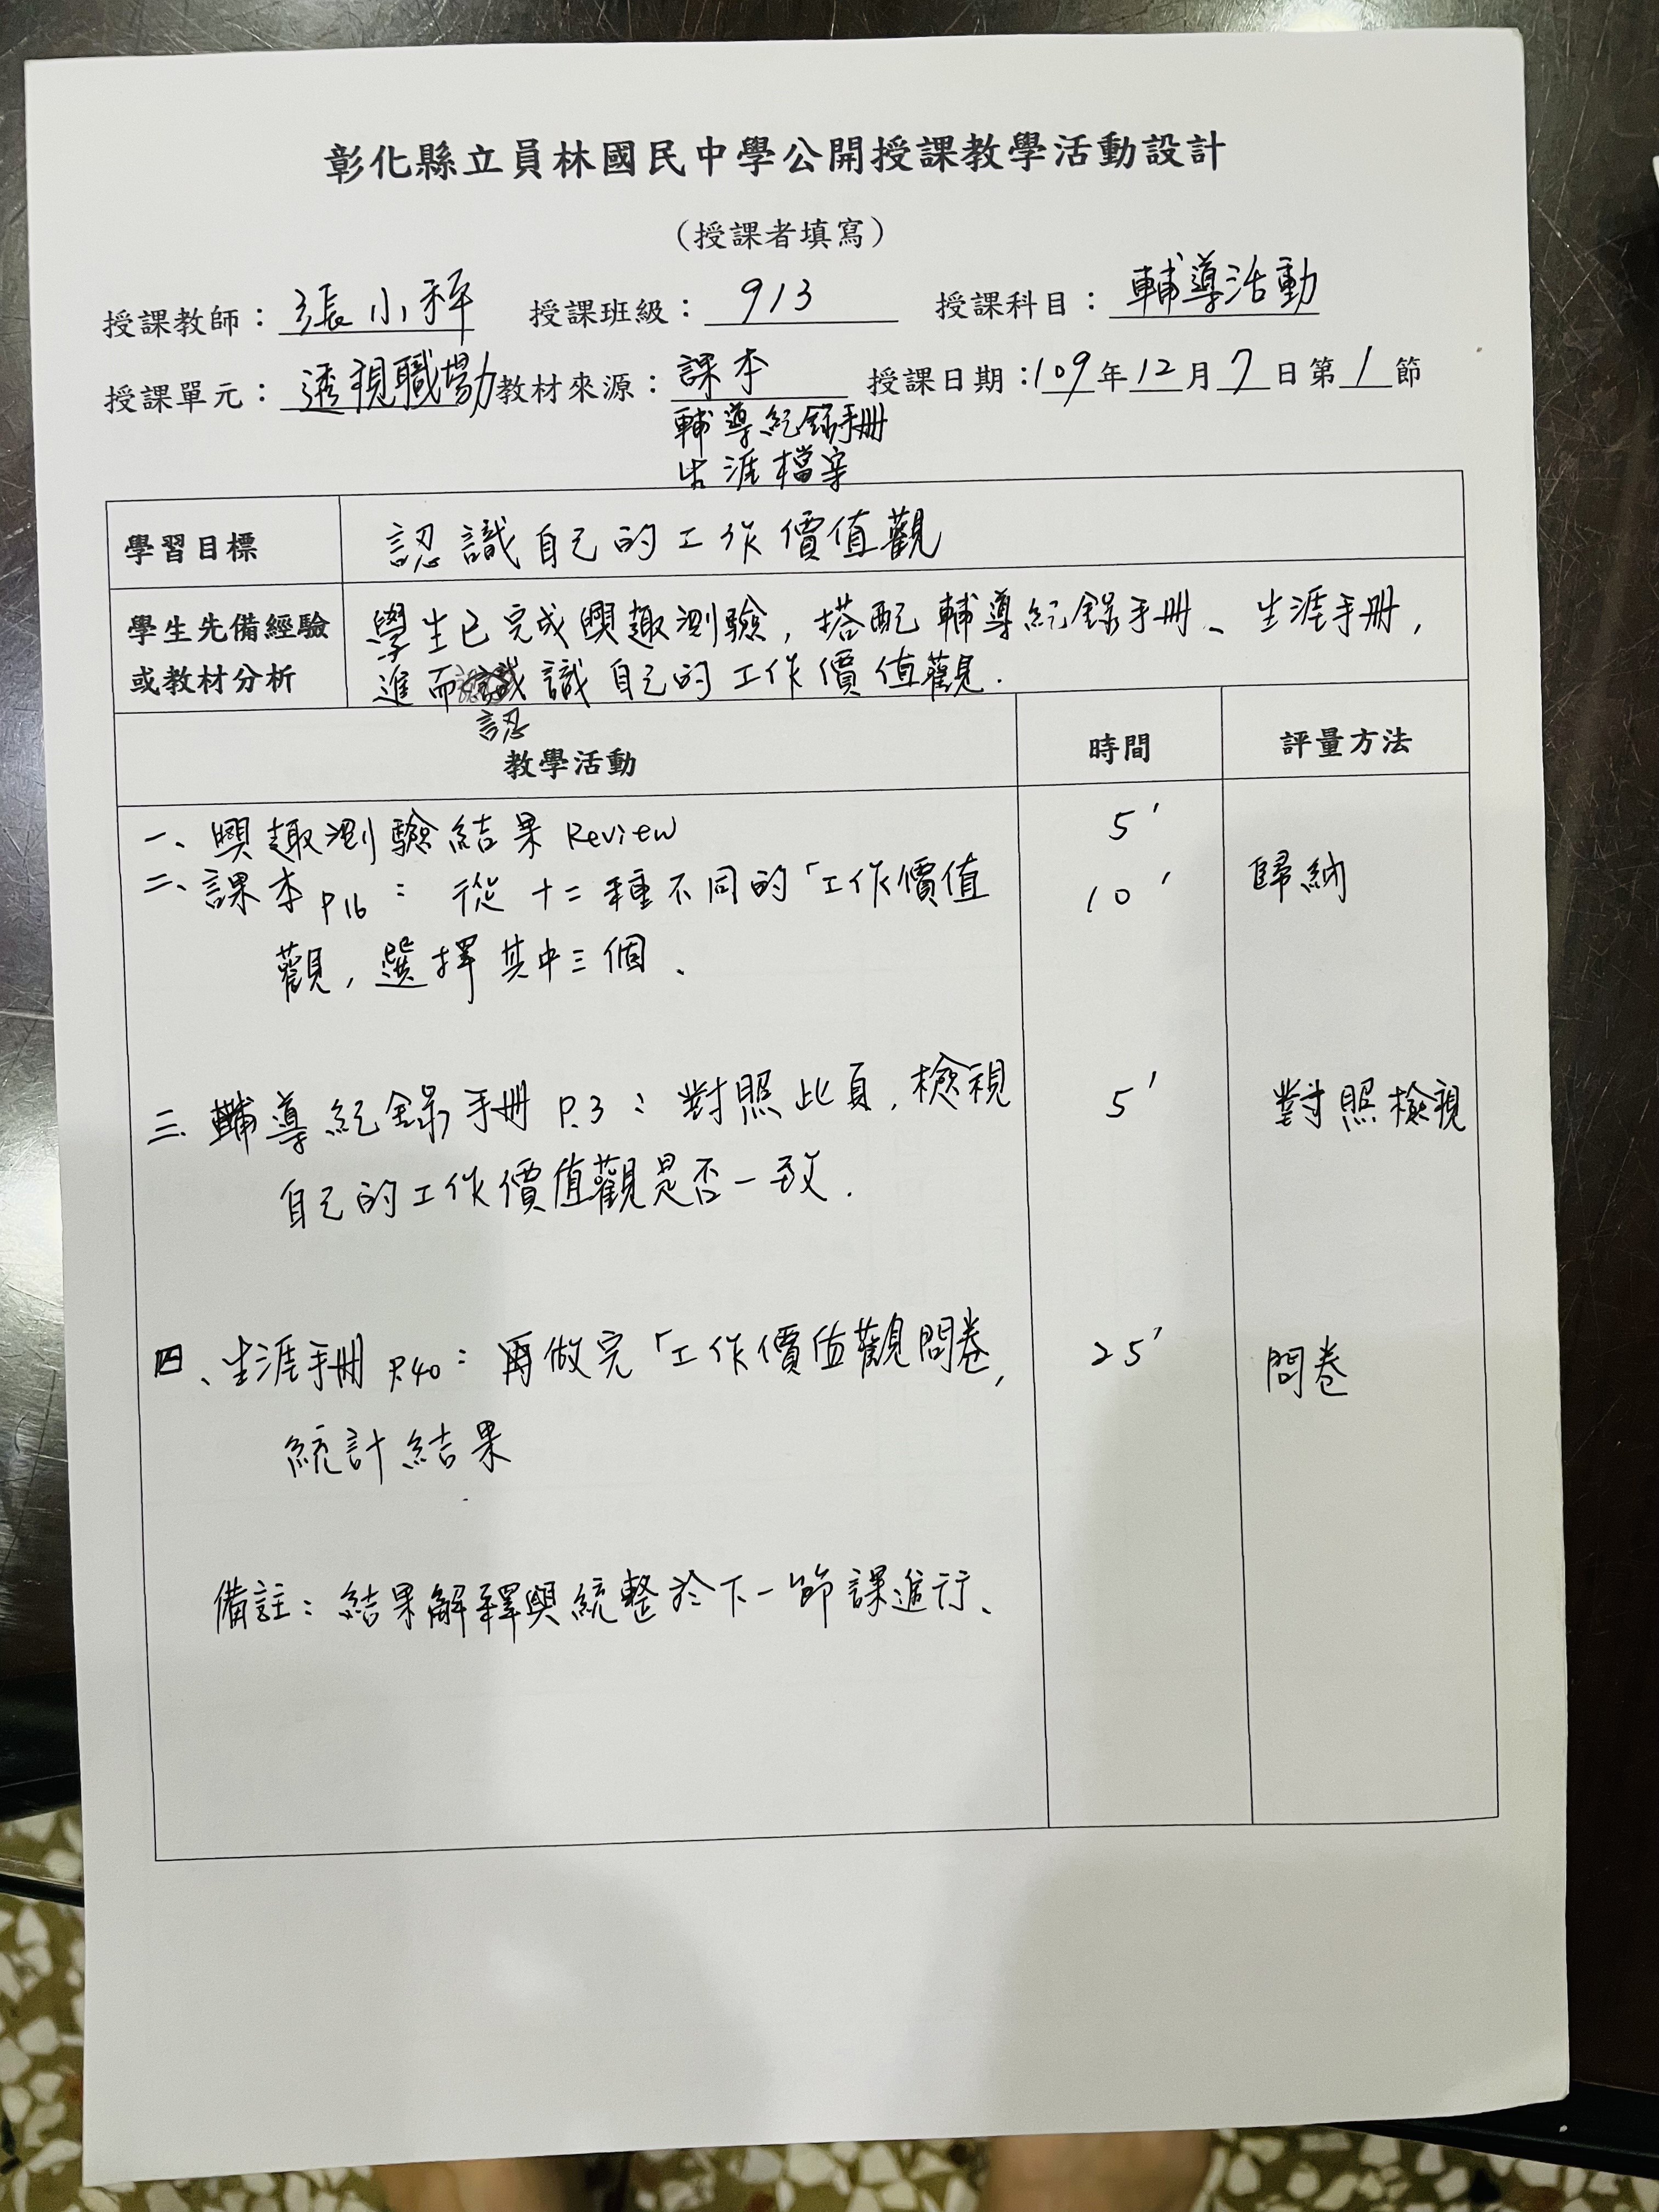 彰化縣立員林國民中學公開授課教學活動設計
（授課者填寫）
授課教師：張小秤 授課班級：913 授課科目：輔導活動
授課單元：透視職場 教材來源：課本 授課日期：109年12月7日第1節
輔導紀錄手冊
生涯檔案
學習目標 認識自己的工作價值觀
學生先備經驗 學生已完成興趣測驗，搭配輔導紀錄手冊、生涯手冊，
或教材分析 進而認識自己的工作價值觀.
教學活動 時間 評量方法
一、興趣測驗結果 Review 5'
二、課本 P16：從十二種不同的「工作價值 10' 歸納
觀，選擇其中三個、
三、輔導紀錄手冊 P.3：對照此頁，檢視 5' 對照檢視
自己的工作價值觀是否一致.
四、生涯手冊 P.40：再做完「工作價值觀問卷， 25' 問卷
統計結果
備註：結果解釋與統整於下一節課進行、